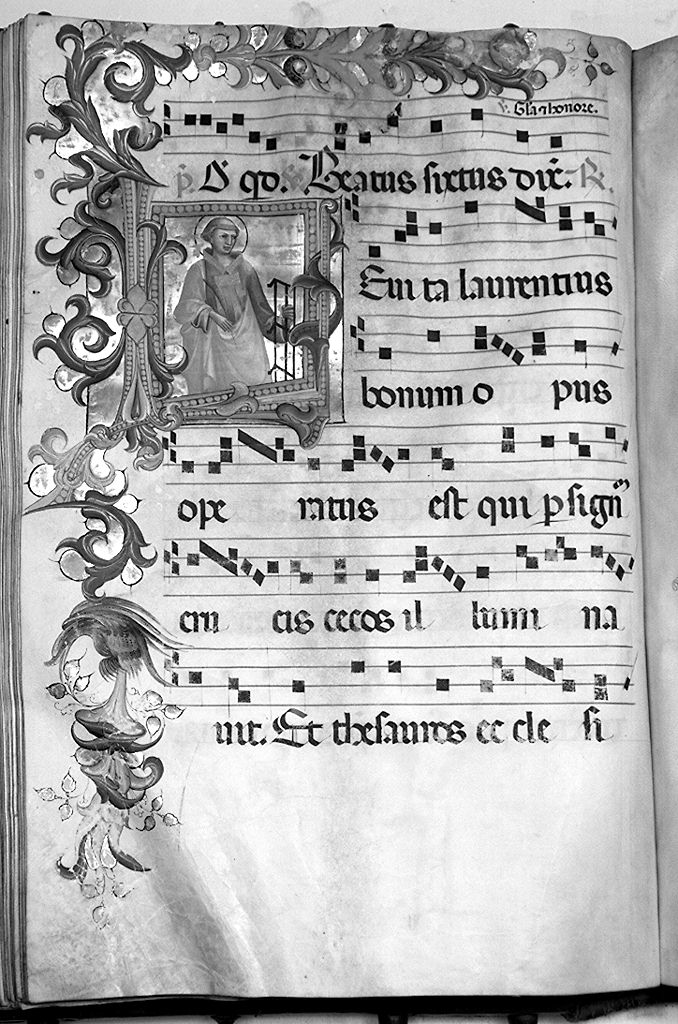 ℣. Gła ⁊ honore.
p̄. D̄ qđ. Beatus sixtus dix̄. R.
Euita laurentius
bonum o pus
ope ratus est qui p sign̄
cru cis cecos il lumi na
uit. Et thesauros ec cle si